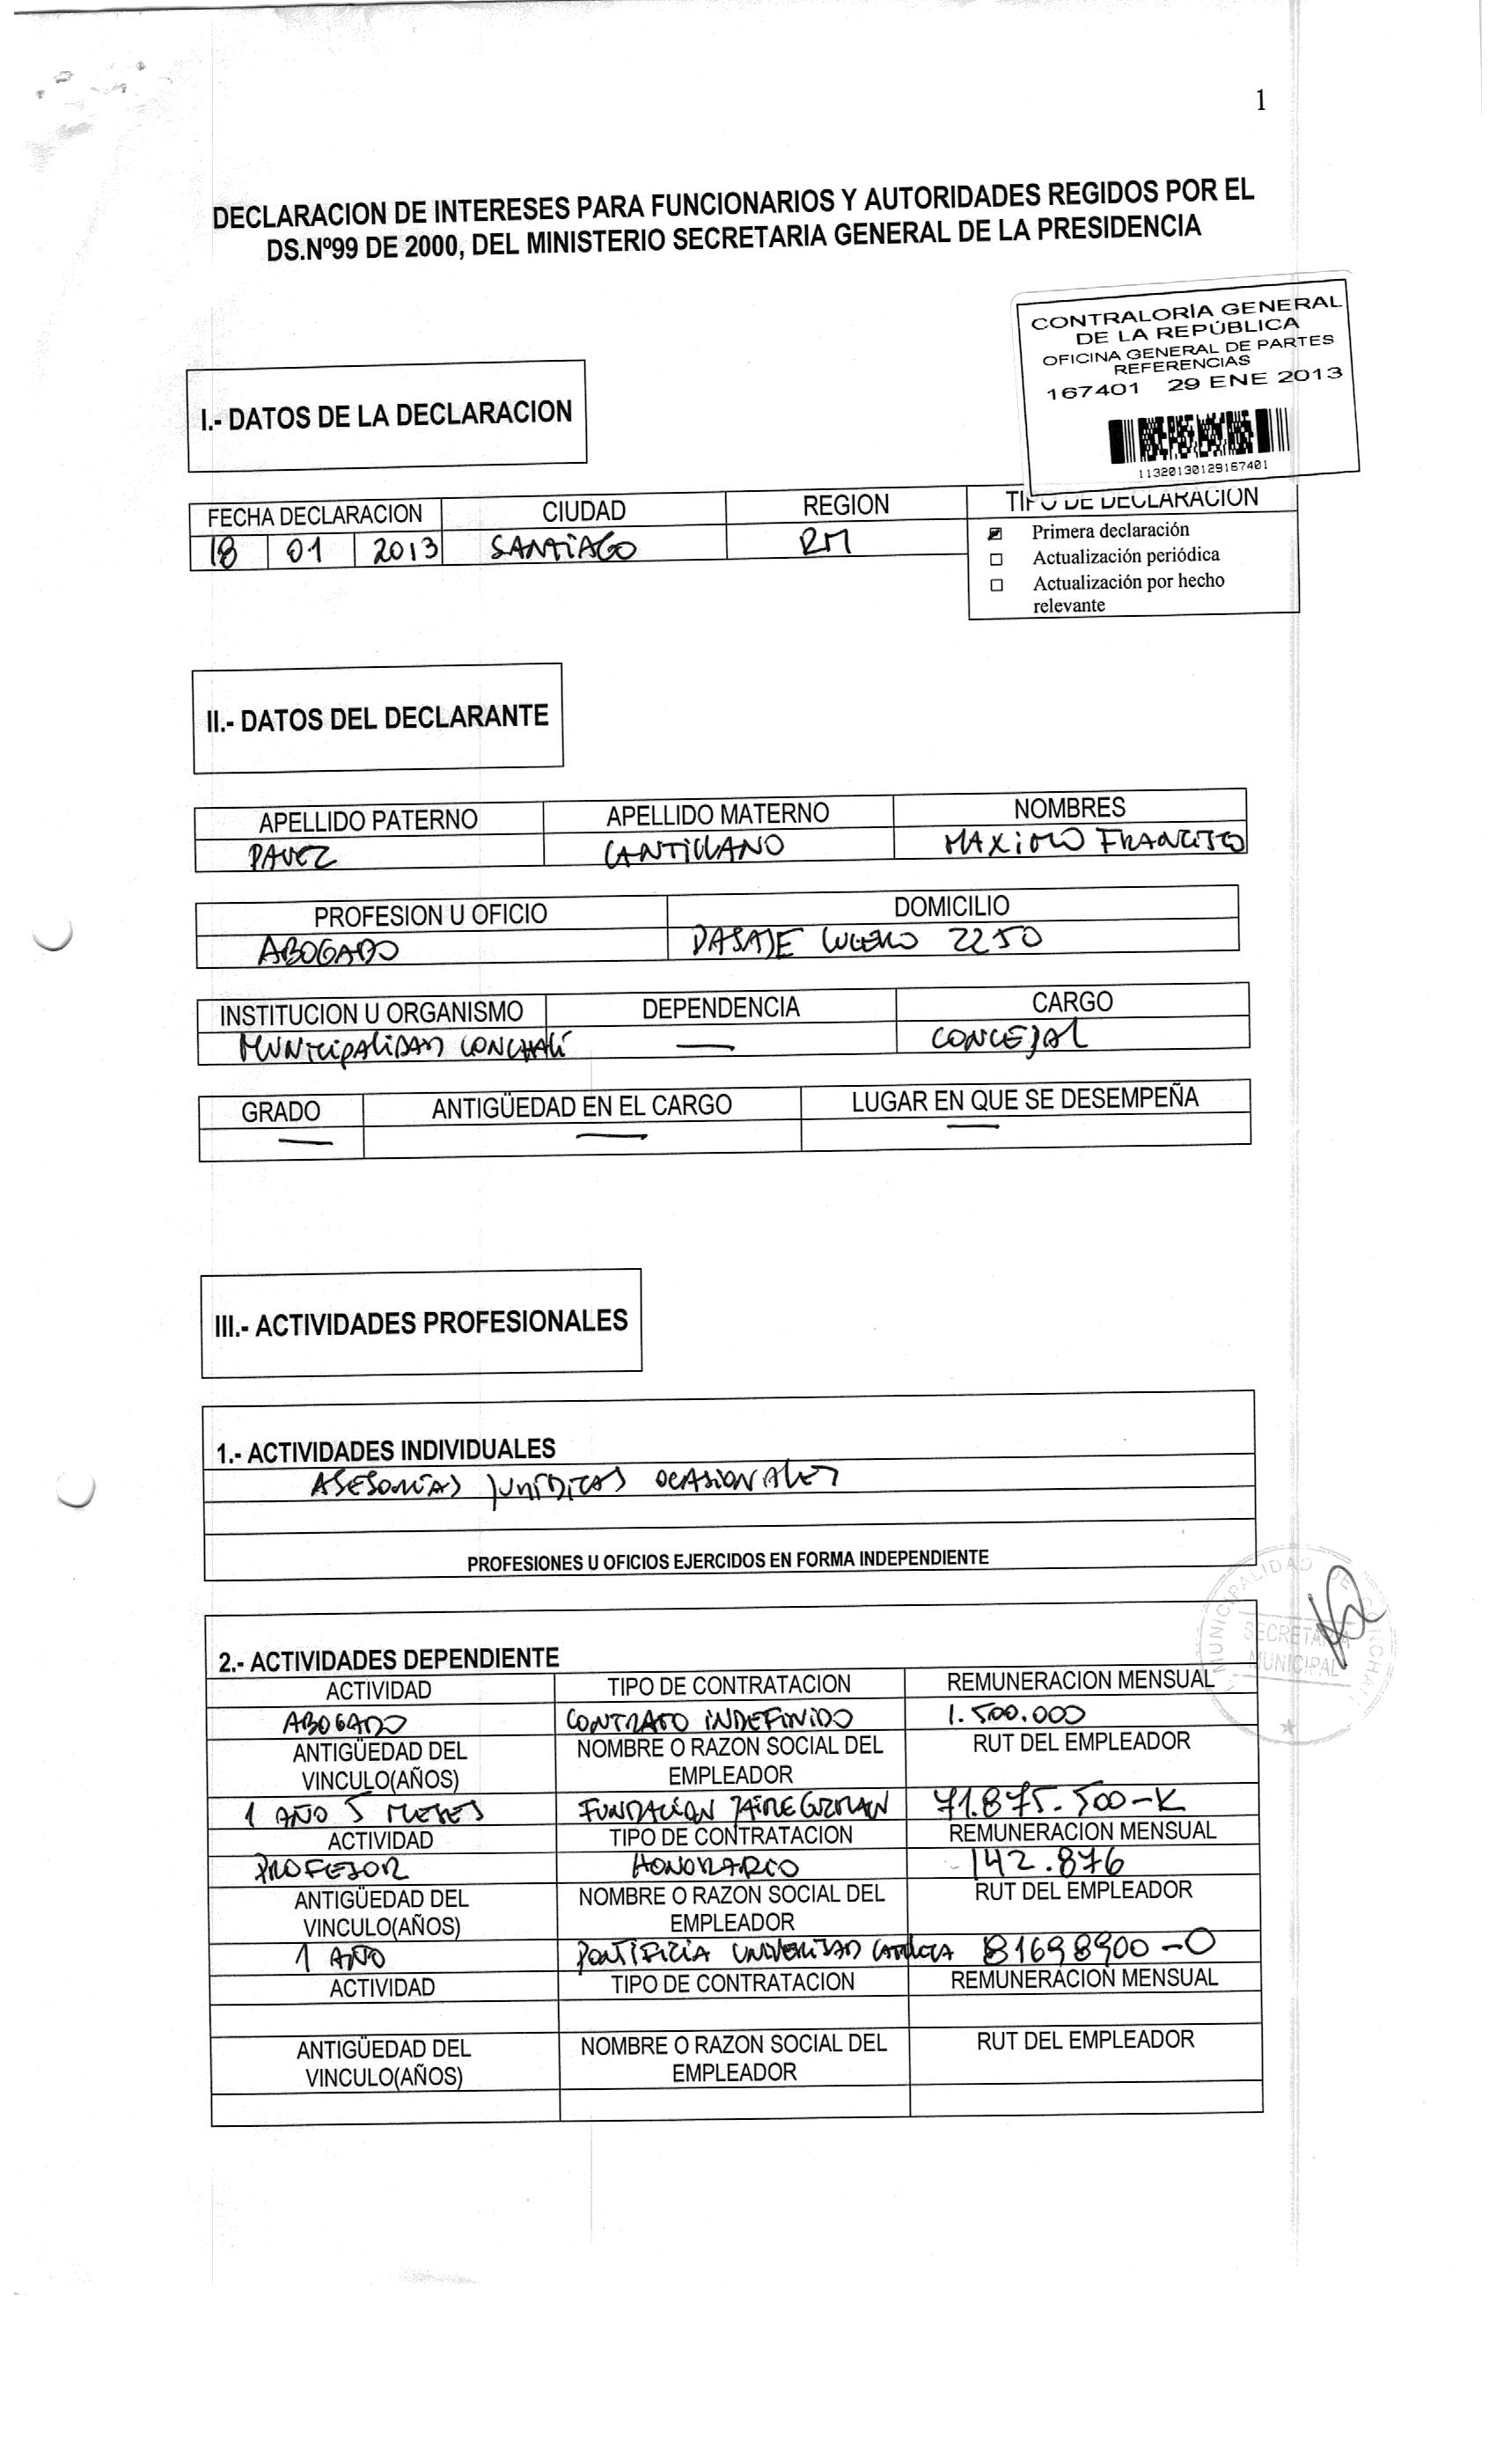 1
DECLARACION DE INTERESES PARA FUNCIONARIOS Y AUTORIDADES REGIDOS POR EL
DS.Nº99 DE 2000, DEL MINISTERIO SECRETARIA GENERAL DE LA PRESIDENCIA
CONTRALORÍA GENERAL
DE LA REPÚBLICA
OFICINA GENERAL DE PARTES
REFERENCIAS
167401 29 ENE 2013
11320130129167401
I.- DATOS DE LA DECLARACION
FECHA DECLARACION CIUDAD REGION TIPO DE DECLARACION
18 01 2013 SANTIAGO RM
Primera declaración
Actualización periódica
Actualización por hecho
relevante
II.- DATOS DEL DECLARANTE
APELLIDO PATERNO APELLIDO MATERNO NOMBRES
PAVEZ CANTILLANO MAXIMO FRANCISCO
PROFESION U OFICIO DOMICILIO
ABOGADO PASAJE 2250
INSTITUCION U ORGANISMO DEPENDENCIA CARGO
MUNICIPALIDAD CONCHALÍ — CONCEJAL
GRADO ANTIGÜEDAD EN EL CARGO LUGAR EN QUE SE DESEMPEÑA
— — —
III.- ACTIVIDADES PROFESIONALES
1.- ACTIVIDADES INDIVIDUALES
ASESORÍAS JURÍDICAS OCASIONALES
PROFESIONES U OFICIOS EJERCIDOS EN FORMA INDEPENDIENTE
MUNICIPALIDAD DE CONCHALI
SECRETARIA
MUNICIPAL
2.- ACTIVIDADES DEPENDIENTE
ACTIVIDAD TIPO DE CONTRATACION REMUNERACION MENSUAL
ABOGADO CONTRATO INDEFINIDO 1.500.000
ANTIGÜEDAD DEL NOMBRE O RAZON SOCIAL DEL RUT DEL EMPLEADOR
VINCULO(AÑOS) EMPLEADOR
1 AÑO 5 MESES FUNDACIÓN JAIME GUZMAN 71.875.500-K
ACTIVIDAD TIPO DE CONTRATACION REMUNERACION MENSUAL
PROFESOR HONORARIO 142.876
ANTIGÜEDAD DEL NOMBRE O RAZON SOCIAL DEL RUT DEL EMPLEADOR
VINCULO(AÑOS) EMPLEADOR
1 AÑO PONTIFICIA UNIVERSIDAD CATOLICA 81698900-0
ACTIVIDAD TIPO DE CONTRATACION REMUNERACION MENSUAL
ANTIGÜEDAD DEL NOMBRE O RAZON SOCIAL DEL RUT DEL EMPLEADOR
VINCULO(AÑOS) EMPLEADOR